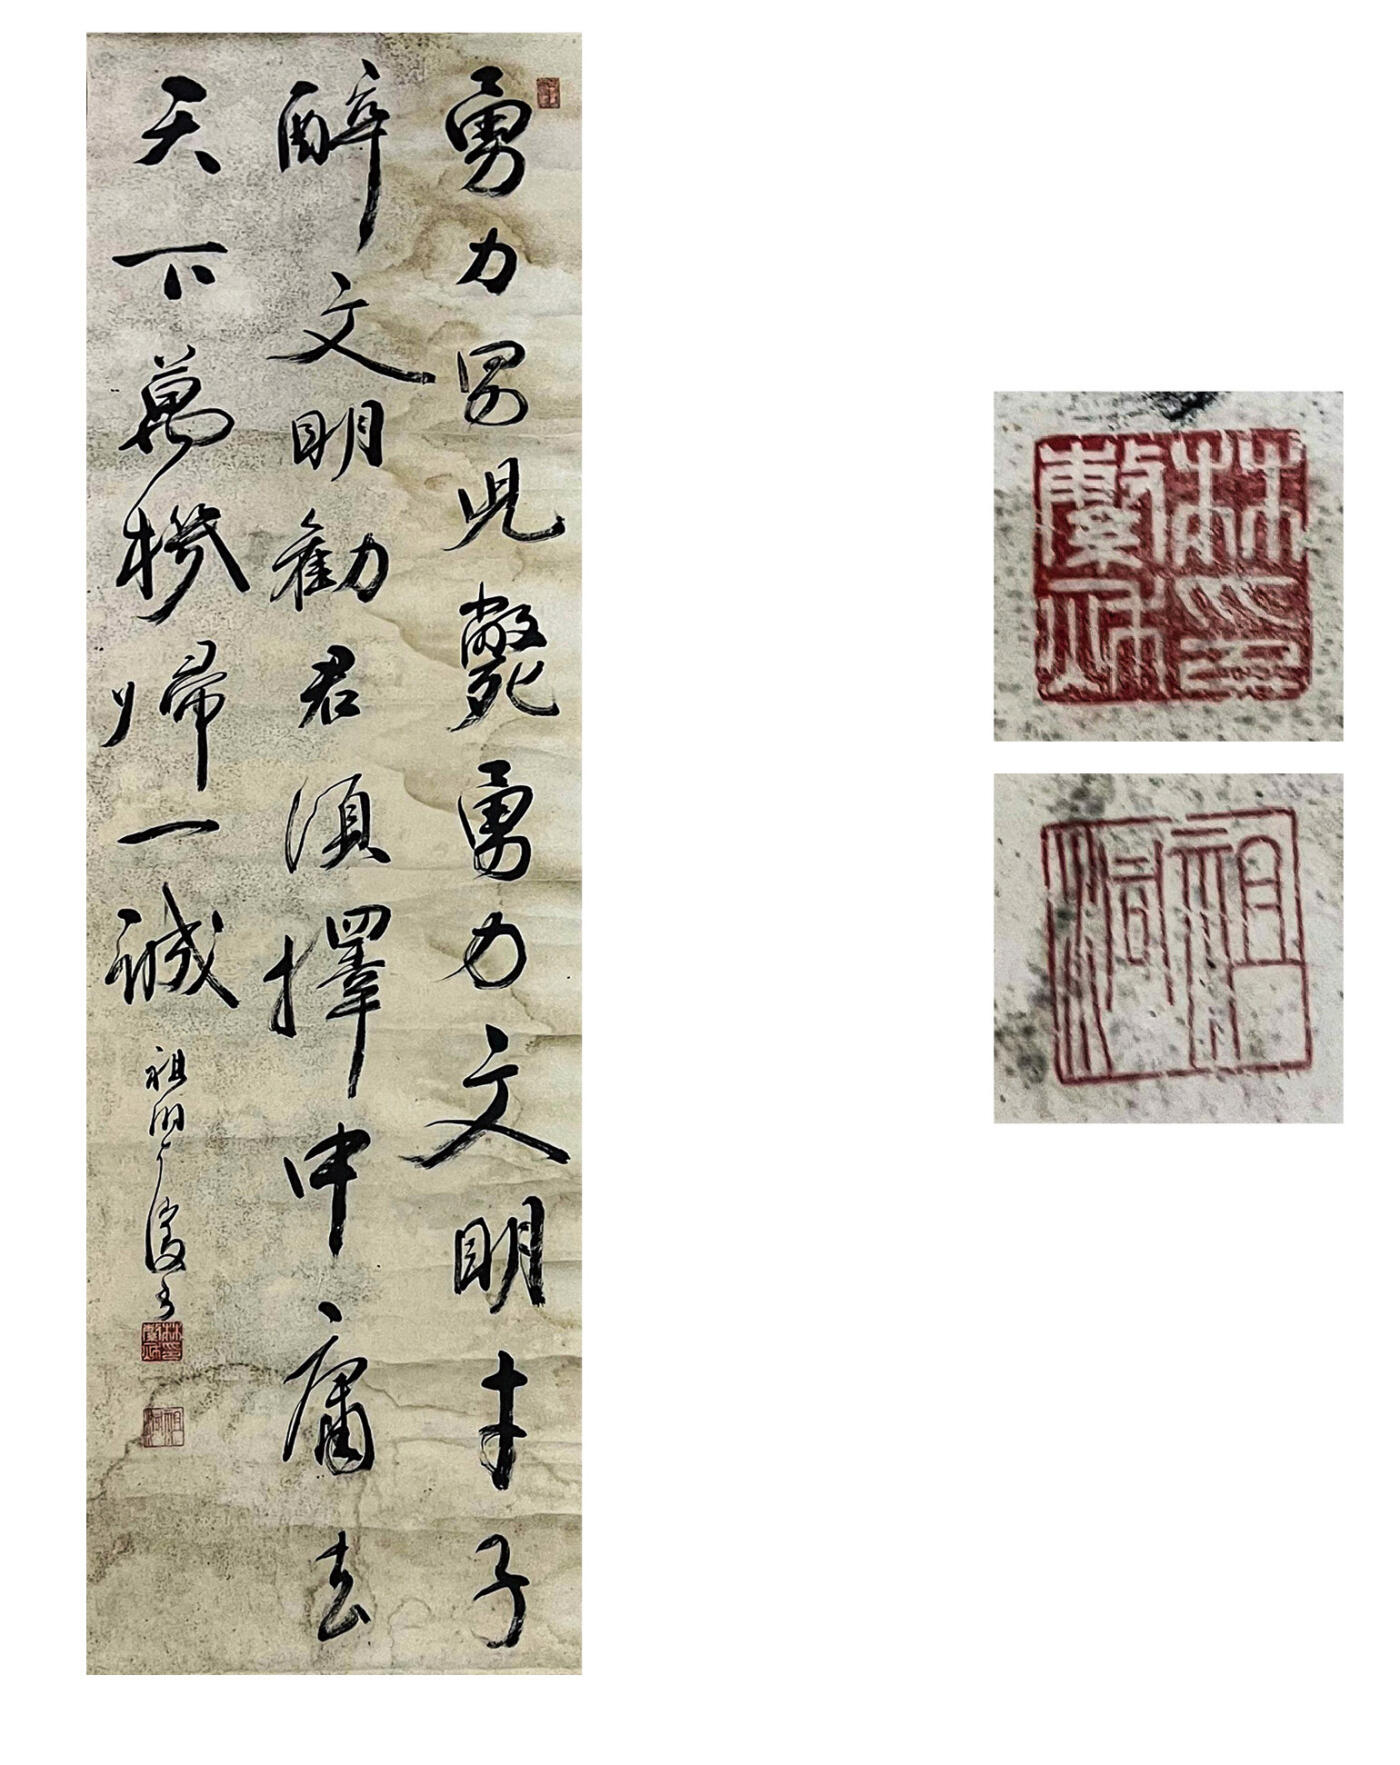 勇力男兒斃勇力文明才子
醉文明勸君須擇中庸去
天下萬機歸一誠
祖洞
林
印
祖洞